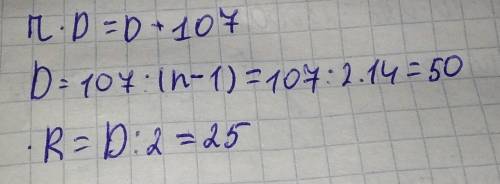 п · D = D + 107
D = 107 : (п-1) = 107 : 2.14 = 50
. R = D : 2 = 25